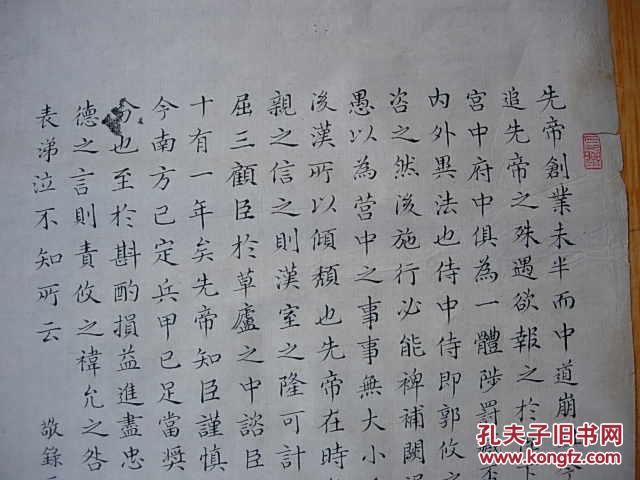 先帝創業未半而中道崩
追先帝之殊遇欲報之於
宮中府中俱為一體陟罰臧否
內外異法也侍中侍郎郭攸之
咨之然後施行必能裨補闕
愚以為营中之事事無大小
後漢所以傾頹也先帝在時
親之信之則漢室之隆可計
屈三顧臣於草廬之中諮臣
十有一年矣先帝知臣謹慎
今南方已定兵甲已足當獎
分也至於斟酌損益進盡忠
德之言則責攸之禕允之咎
表涕泣不知所云 敬錄
孔夫子旧书网
KONGFZ.COM